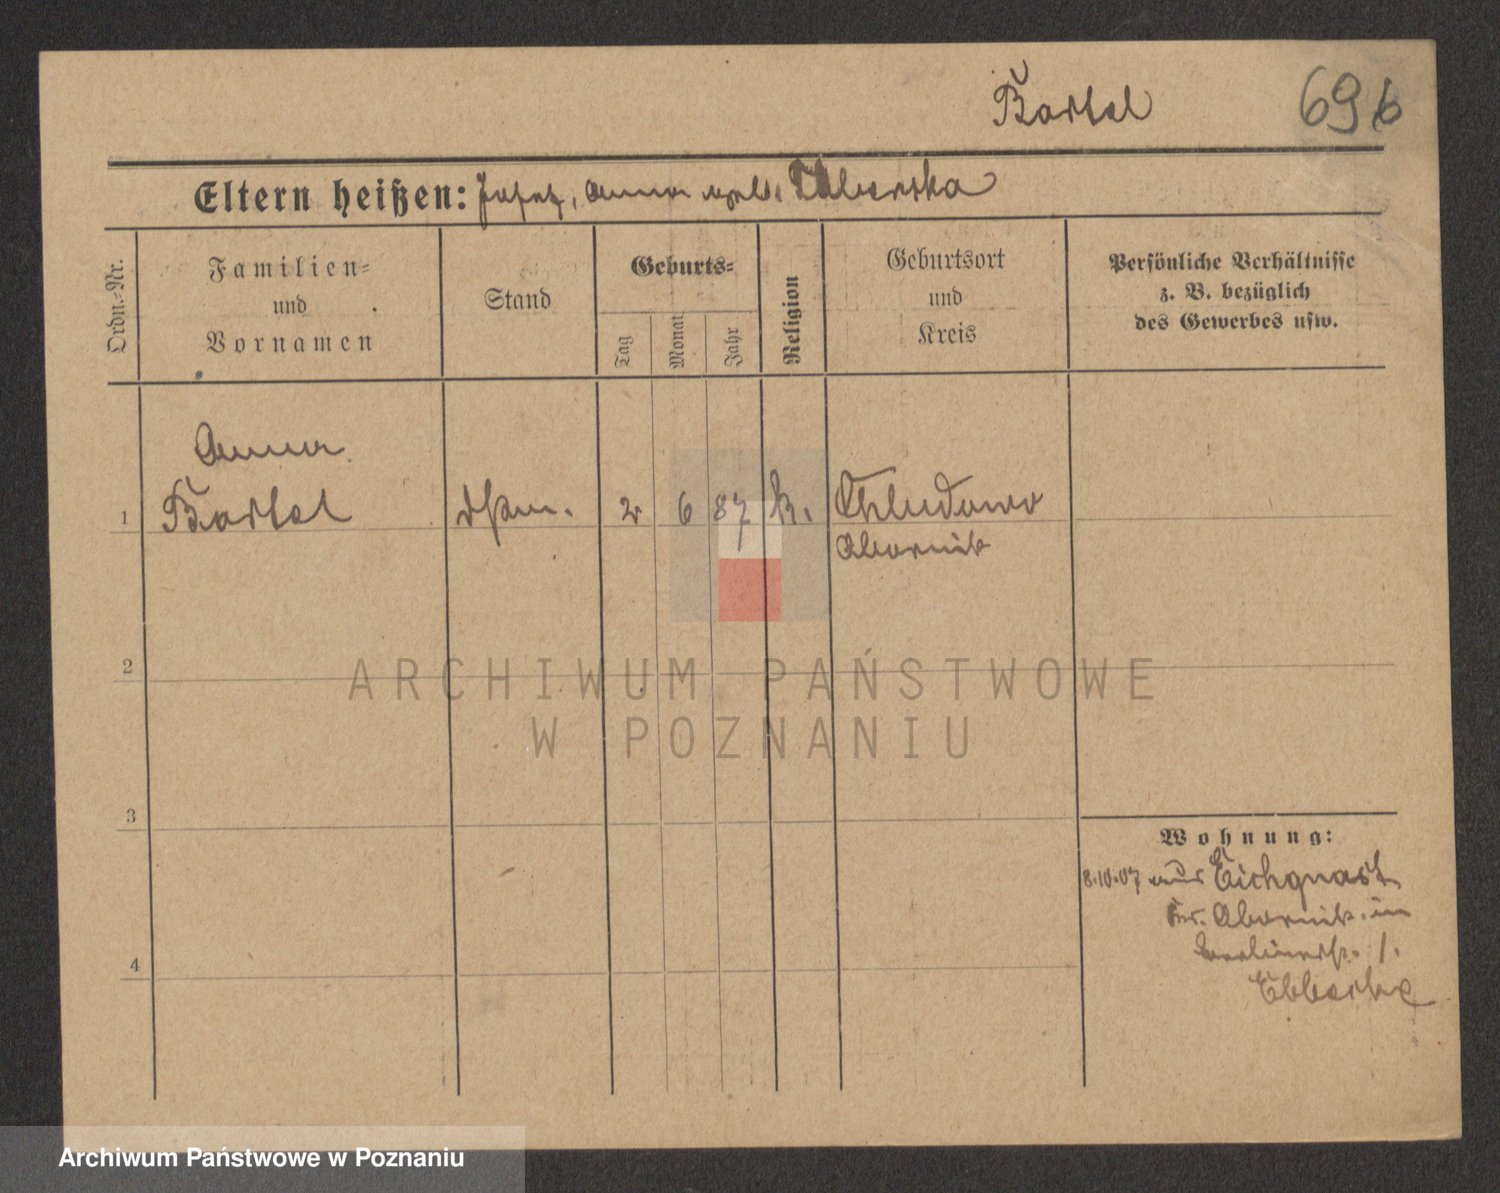 Bartel 69b
Eltern heißen: Josef, Anna geb.
Ordn.=Nr.
Familien=
und
Vornamen
Stand
Geburts=
Tag
Monat
Jahr
Religion
Geburtsort
und
Kreis
Persönliche Verhältnisse
z. B. bezüglich
des Gewerbes usw.
Anna
1 Bartel 2 6 87 k. Chludowo
Obornik
2
3
4
Wohnung:
8.10.07 aus Eichquast
Kr. Obornik in
1.
ARCHIWUM PAŃSTWOWE
W POZNANIU
Archiwum Państwowe w Poznaniu